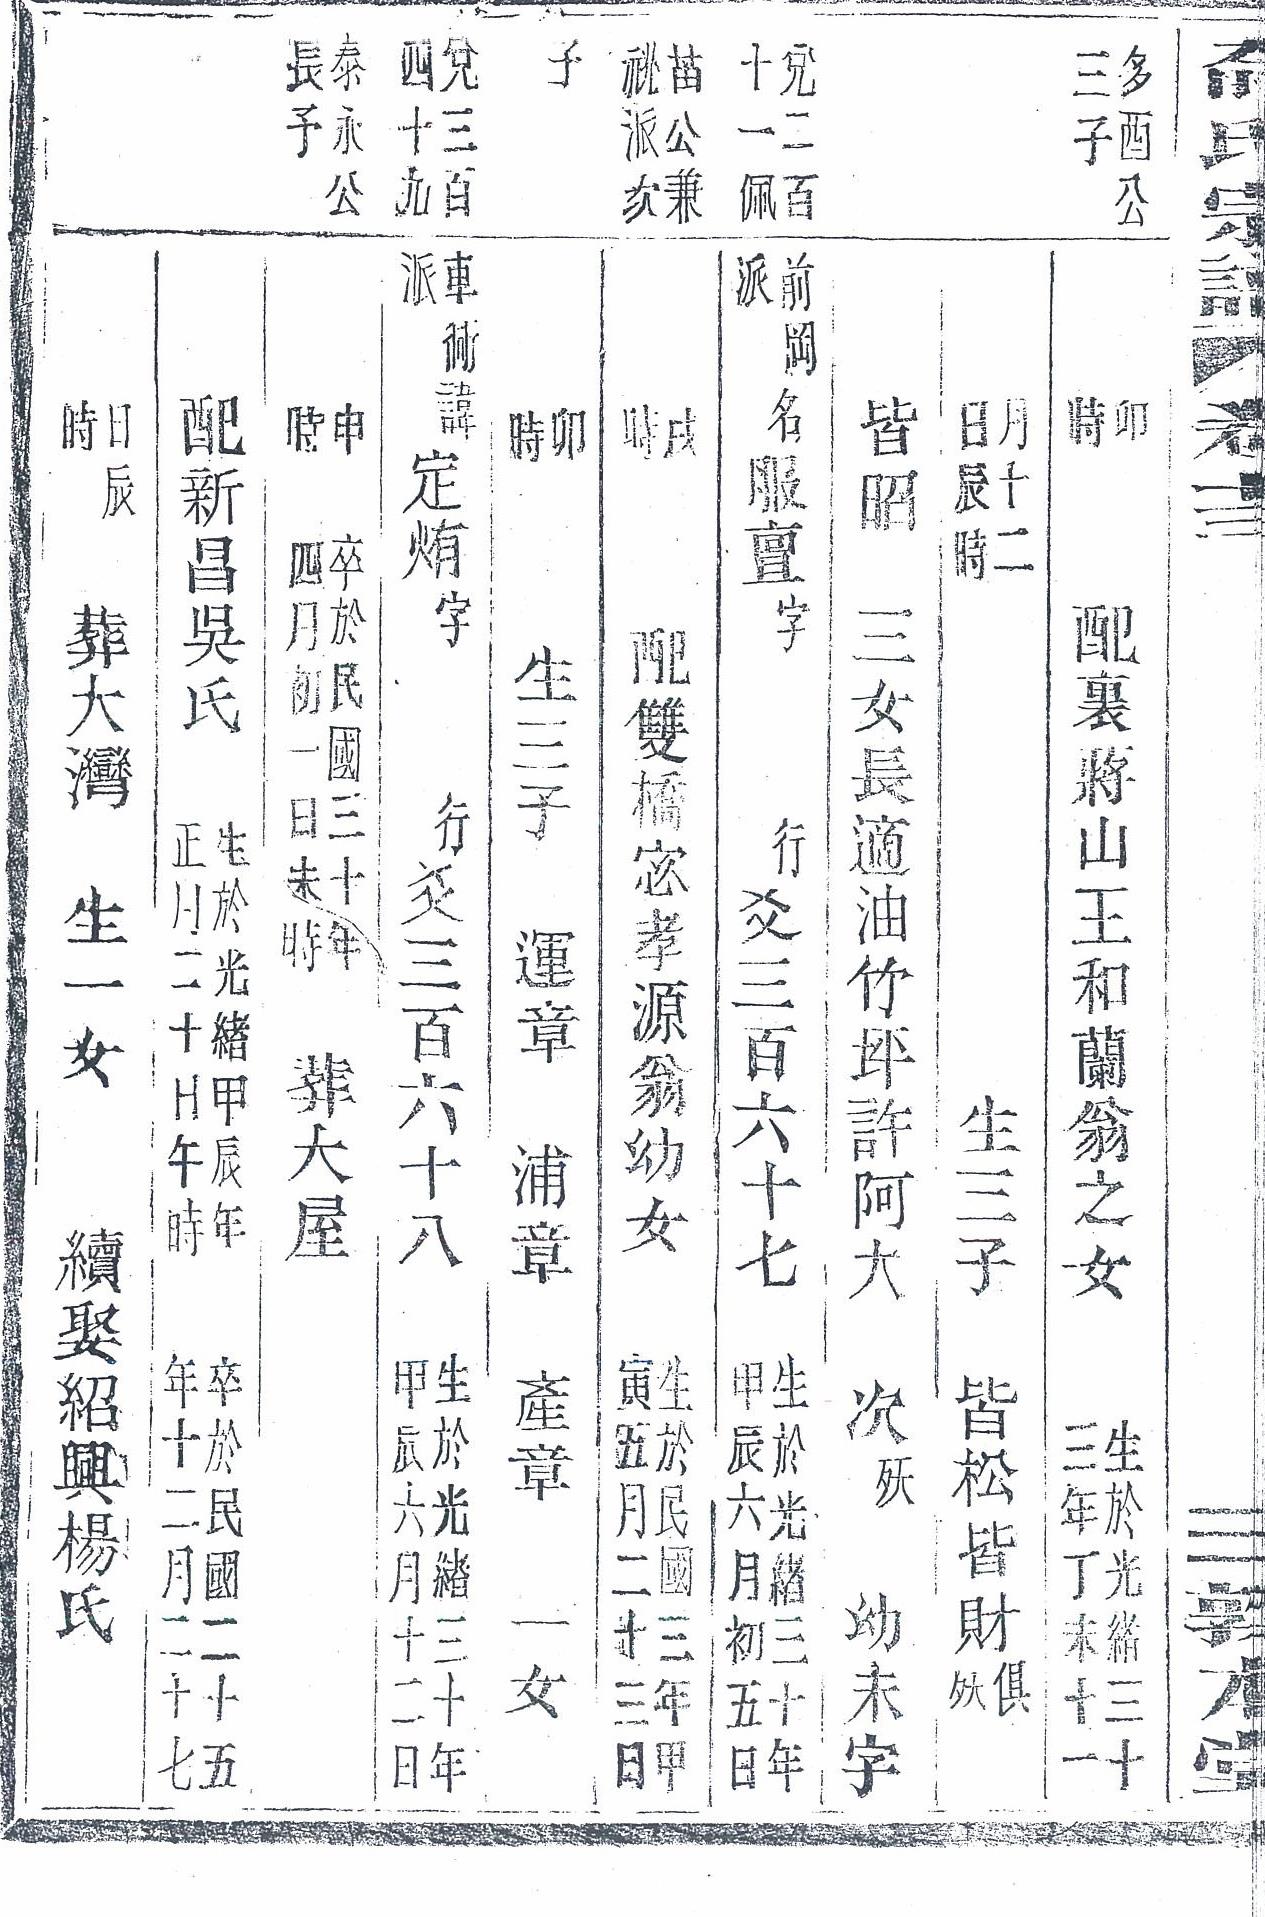 氏宗譜 卷三 三 敦本堂
多酉公
三子
卯
時
配裏蔣山王和蘭翁之女
生於光緒三十
三年丁未十一
月十二
日辰時
生三子 皆松皆財俱殀
皆昭 三女長適油竹坪許阿大 次殀 幼未字
兌二百
十一佩
前岡
派
名服亶字 行爻三百六十七
生於光緒三十年
甲辰六月初五日
苗公兼
祕派次
戌
時
配雙橋宓孝源翁幼女
生於民國三年甲
寅五月二十三日
子
卯
時
生三子 運章 浦章 產章 一女
兌三百
四十九
車衖
派
諱定烠字 行爻三百六十八
生於光緒三十年
甲辰六月十二日
泰永公
長子
申
時
卒於民國三十年
四月初一日未時
葬大屋
配新昌吳氏
生於光緒甲辰年
正月二十日午時
卒於民國二十五
年十二月二十七
日辰
時
葬大灣 生一女 續娶紹興楊氏